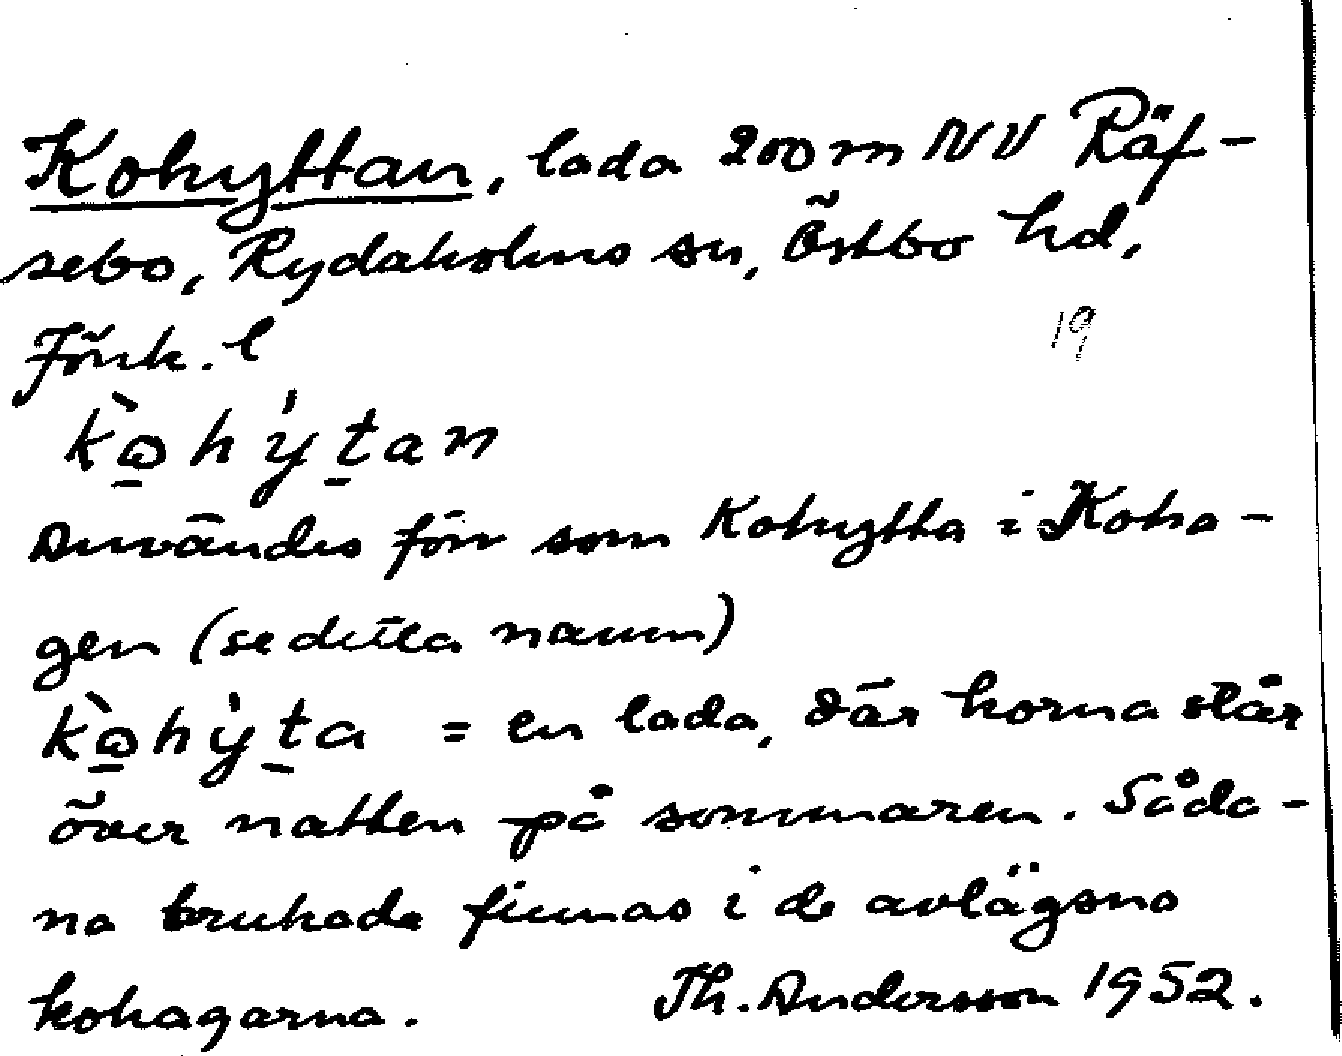 Kohyttan, lada 200 m NV Räf-
sebo, Rydaholms sn, Östbo hd,
Jönk. l
19
kòhy̍tan
Användes förr som Kohytta i Koha-
gen (se detta namn)
kòhy̍ta = en lada, där korna står
över natten på sommaren. Såda-
na brukade finnas i de avlägsna
kohagarna. Th. Andersson 1952.